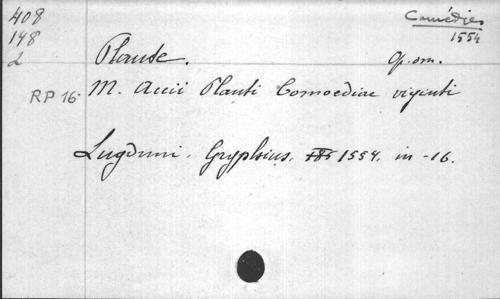 408
148
2
Comédies
1554
Plaute.
Op. om.
RP 16.
M. Accii Plauti Comoediae viginti
Lugduni. Gryphius, 1554. in-16.